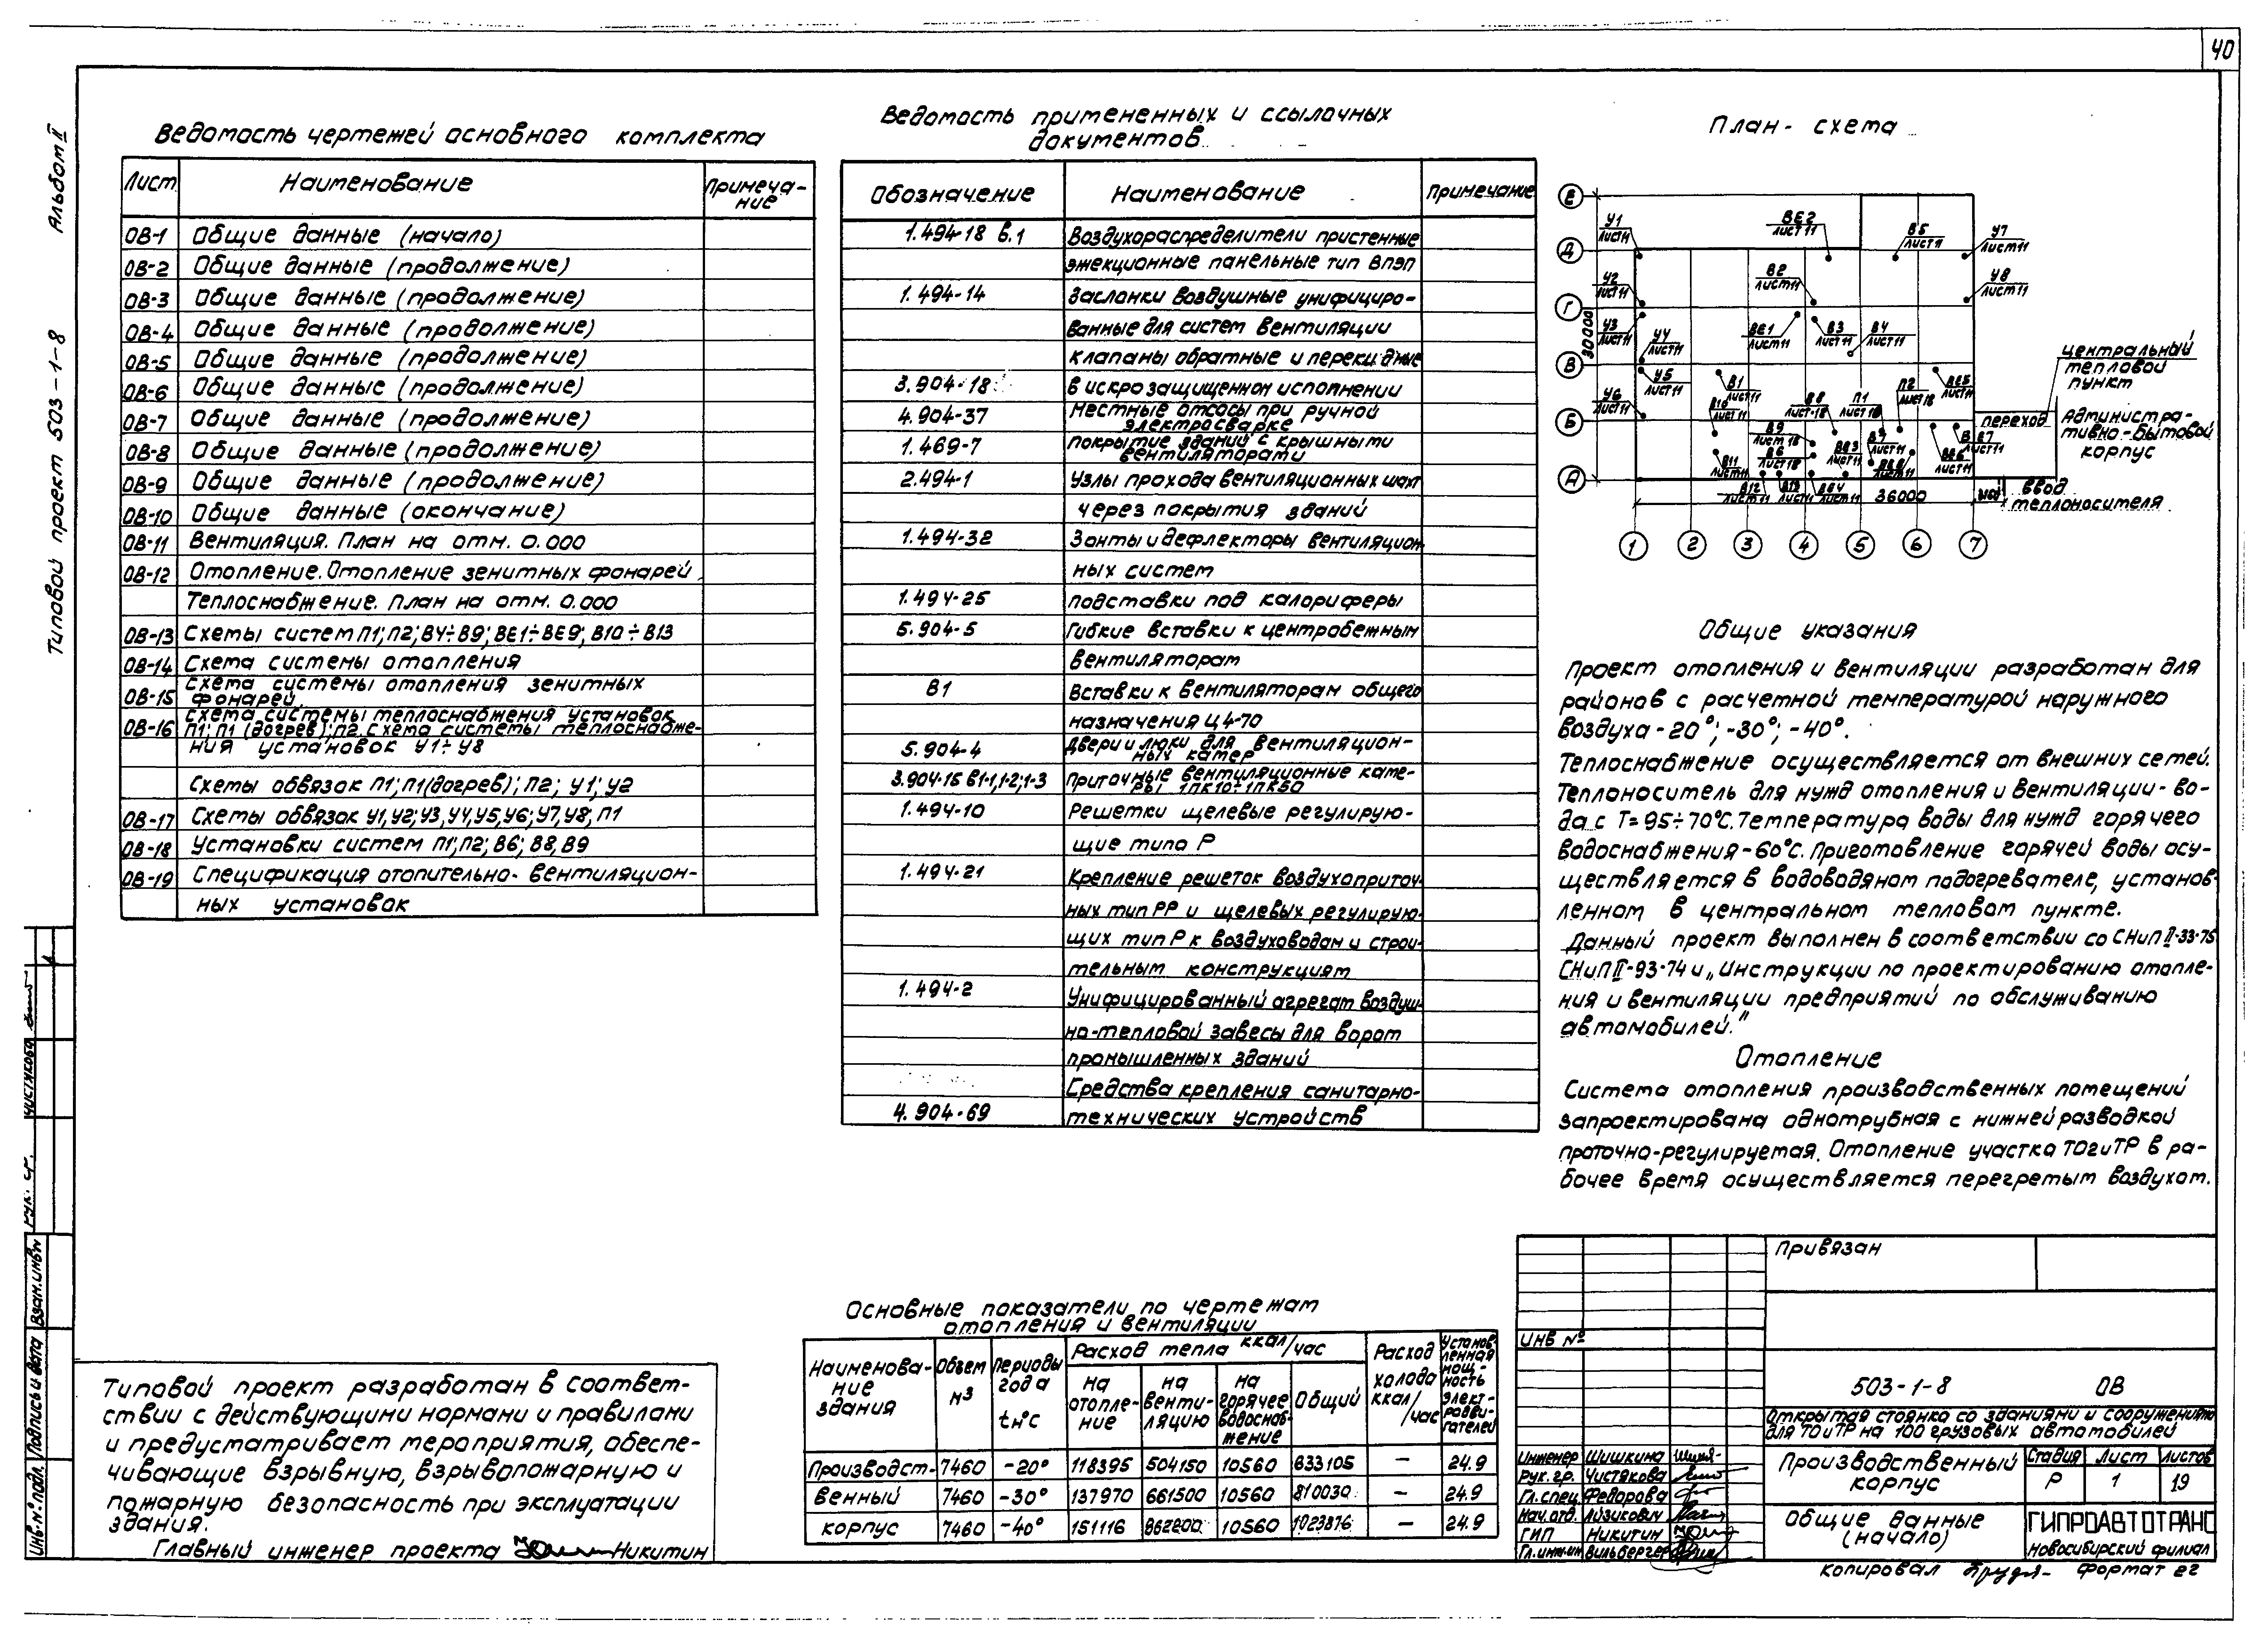 40
Альбом II
Типовой проект 503-1-8
Ведомость чертежей основного комплекта
Лист Наименование Примеча-
ние
ОВ-1 Общие данные (начало)
ОВ-2 Общие данные (продолжение)
ОВ-3 Общие данные (продолжение)
ОВ-4 Общие данные (продолжение)
ОВ-5 Общие данные (продолжение)
ОВ-6 Общие данные (продолжение)
ОВ-7 Общие данные (продолжение)
ОВ-8 Общие данные (продолжение)
ОВ-9 Общие данные (продолжение)
ОВ-10 Общие данные (окончание)
ОВ-11 Вентиляция. План на отм. 0.000
ОВ-12 Отопление. Отопление зенитных фонарей.
Теплоснабжение. План на отм. 0.000
ОВ-13 Схемы систем П1; П2; В4÷В9; ВЕ1÷ВЕ9; В10÷В13
ОВ-14 Схема системы отопления
ОВ-15 Схема системы отопления зенитных
фонарей
ОВ-16 Схема системы теплоснабжения установок
П1; П1 (догрев); П2. Схема системы теплоснабже-
ния установок У1÷У8
Схемы обвязок П1; П1(догрев); П2; У1; У2
ОВ-17 Схемы обвязок У1, У2; У3, У4, У5, У6; У7, У8; П1
ОВ-18 Установки систем П1; П2; В6; В8, В9
ОВ-19 Спецификация отопительно-вентиляцион-
ных установок
Ведомость примененных и ссылочных
документов
Обозначение Наименование Примечание
1.494-18 в.1 Воздухораспределители пристенные
эжекционные панельные тип ВПЭП
1.494-14 Заслонки воздушные унифициро-
ванные для систем вентиляции
Клапаны обратные и перекидные
3.904-18 в искрозащищенном исполнении
4.904-37 Местные отсосы при ручной
электросварке
1.469-7 Покрытие зданий с крышными
вентиляторами
2.494-1 Узлы прохода вентиляционных шахт
через покрытия зданий
1.494-32 Зонты и дефлекторы вентиляцион-
ных систем
1.494-25 Подставки под калориферы
5.904-5 Гибкие вставки к центробежным
вентиляторам
В1 Вставки к вентиляторам общего
назначения Ц4-70
5.904-4 Двери и люки для вентиляцион-
ных камер
3.904-15 В1-1, 1-2; 1-3 Приточные вентиляционные каме-
ры 1ПК10÷1ПК50
1.494-10 Решетки щелевые регулирую-
щие типа Р
1.494-21 Крепление решеток воздухоприточ-
ных тип РР и щелевых регулирую-
щих тип Р к воздуховодам и строи-
тельным конструкциям
1.494-2 Унифицированный агрегат воздуш-
но-тепловой завесы для ворот
промышленных зданий
Средства крепления санитарно-
4.904-69 технических устройств
План-схема
Е
Д
Г
В
Б
А
30000
У1
Лист 11
ВЕ2
Лист 11
В5
Лист 11
У7
Лист 11
У2
Лист 11
В2
Лист 11
У8
Лист 11
У3
Лист 11
У4
Лист 11
ВЕ1
Лист 11
В3
Лист 11
В4
Лист 11
У5
Лист 11
В1
Лист 11
П2
Лист 18
ВЕ5
Лист 11
У6
Лист 11
В10
Лист 11
В8
Лист 18
П1
Лист 18
В9
Лист 18
В6
Лист 18
ВЕ3
Лист 11
В7
Лист 11
В11
Лист 11
В12
Лист 11
В13
Лист 11
ВЕ4
Лист 11
36000
центральный
тепловой
пункт
переход
Администра-
тивно-бытовой
корпус
ввод
теплоносителя
1 2 3 4 5 6 7
Общие указания
Проект отопления и вентиляции разработан для
районов с расчетной температурой наружного
воздуха -20°; -30°; -40°.
Теплоснабжение осуществляется от внешних сетей.
Теплоноситель для нужд отопления и вентиляции-во-
да с Т=95÷70°С. Температура воды для нужд горячего
водоснабжения-60°С. Приготовление горячей воды осу-
ществляется в водоводяном подогревателе, установ-
ленном в центральном тепловом пункте.
Данный проект выполнен в соответствии со СНиП II-33-75
СНиП II-93-74 и „Инструкции по проектированию отопле-
ния и вентиляции предприятий по обслуживанию
автомобилей."
Отопление
Система отопления производственных помещений
запроектирована однотрубная с нижней разводкой
проточно-регулируемая. Отопление участка ТО2иТР в ра-
бочее время осуществляется перегретым воздухом.
Типовой проект разработан в соответ-
ствии с действующими нормами и правилами
и предусматривает мероприятия, обеспе-
чивающие взрывную, взрывопожарную и
пожарную безопасность при эксплуатации
здания.
Главный инженер проекта Никитин
Основные показатели по чертежам
отопления и вентиляции
Наименова-
ние
здания
Объем
м3
Периоды
года
tн°С
Расход тепла ккал/час
на
отопле-
ние
на
венти-
ляцию
на
горячее
водоснаб-
жение
Общий
Расход
холода
ккал/
час
Установ-
ленная
мощ-
ность
элект-
родви-
гателей
Производст- 7460 -20° 118395 504150 10560 633105 — 24.9
венный 7460 -30° 137970 661500 10560 810030 — 24.9
корпус 7460 -40° 151116 862200 10560 1023876 — 24.9
Привязан
ИНВ №
503-1-8 ОВ
Открытая стоянка со зданиями и сооружениями
для ТО и ТР на 100 грузовых автомобилей
Инженер Шишкина
Рук. гр. Чистякова
Гл. спец. Федорова
Нач. отд. Айзикович
ГИП Никитин
Гл. инж. ин Вильбергер
Производственный
корпус
Стадия Лист Листов
Р 1 19
Общие данные
(начало)
ГИПРОАВТОТРАНС
Новосибирский филиал
Копировал Формат 22
Рук. гр. Чистякова
Взам. инв №
Подпись и дата
Инв. № подл.